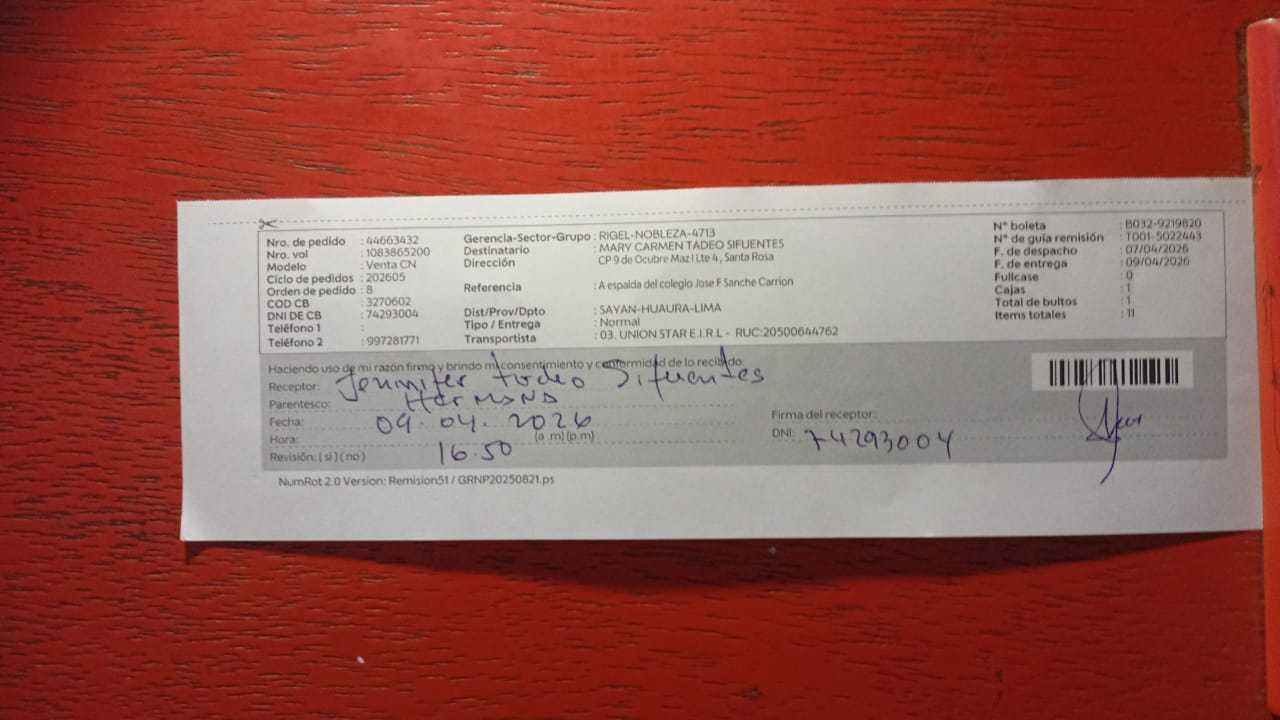 Nro. de pedido : 44663432
Nro. vol : 1083865200
Modelo : Venta CN
Ciclo de pedidos : 202605
Orden de pedido : 8
COD CB : 3270602
DNI DE CB : 74293004
Teléfono 1 :
Teléfono 2 : 997281771
Gerencia-Sector-Grupo : RIGEL-NOBLEZA-4713
Destinatario : MARY CARMEN TADEO SIFUENTES
Dirección CP 9 de Ocubre Maz I Lte 4 , Santa Rosa
Referencia : A espalda del colegio Jose F Sanche Carrion
Dist/Prov/Dpto : SAYAN-HUAURA-LIMA
Tipo / Entrega : Normal
Transportista : 03. UNION STAR E.I.R.L - RUC:20500644762
N° boleta : B032-9219820
N° de guía remisión : T001-5022443
F. de despacho : 07/04/2026
F. de entrega : 09/04/2026
Fullcase : 0
Cajas : 1
Total de bultos : 1
Items totales : 11
Haciendo uso de mi razón firmo y brindo mi consentimiento y conformidad de lo recibido:
Receptor: Jennifer tadeo Sifuentes
Parentesco: Hermana
Fecha: 09.04.2026
Hora: 16.50 (a .m) (p.m)
Revisión: ( si ) ( no )
Firma del receptor:
DNI: 74293004
NumRot 2.0 Version: Remision51 / GRNP20250821.ps